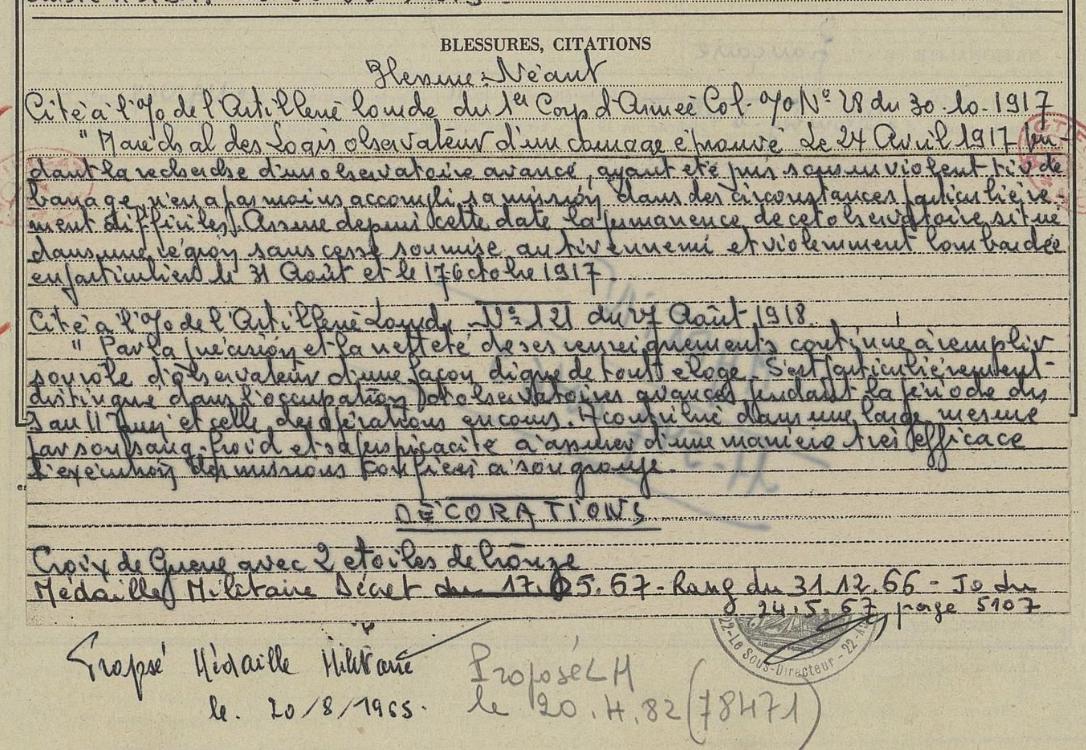 BLESSURES, CITATIONS
Blessure: Néant
Cité à l'o/o de l'Artillerie lourde du 1er Corps d'Armée Col. o/o N° 28 du 30-10-1917
" Maréchal des Logis observateur d'un courage éprouvé Le 24 Avril 1917 pen-
dant la recherche d'un observatoire avancé, ayant été pris sous un violent tir de
barrage, n'en a pas moins accompli sa mission, dans des circonstances particulière-
ment difficiles. Assure depuis cette date la permanence de cet observatoire situé
dans une région sans cesse soumise au tir ennemi et violemment bombardée
en particulier le 31 Août et le 17 Octobre 1917
Cité à l'o/o de l'Artillerie Lourde N° 121 du 27 Août 1918
" Par la précision et la netteté de ses renseignements continue à remplir
son rôle d'observateur d'une façon digne de tout éloge. S'est particulièrement
distingué dans l'occupation d'observatoires avancés pendant la période du
3 au 11 Juin et celle des opérations en cours. A contribué dans une large mesure
par son sang-froid et sa perspicacité à assurer d'une manière très efficace
l'exécution des missions confiées à son groupe.
DÉCORATIONS
Croix de Guerre avec 2 étoiles de bronze
Médaille Militaire Décret du 17.05.67 - Rang du 31.12.66 - Jo du
24.5.67, page 5107
Sous-Directeur
Proposé Médaille Militaire
le 20/8/1965.
Proposé LH
le 20.4.82 (78471)